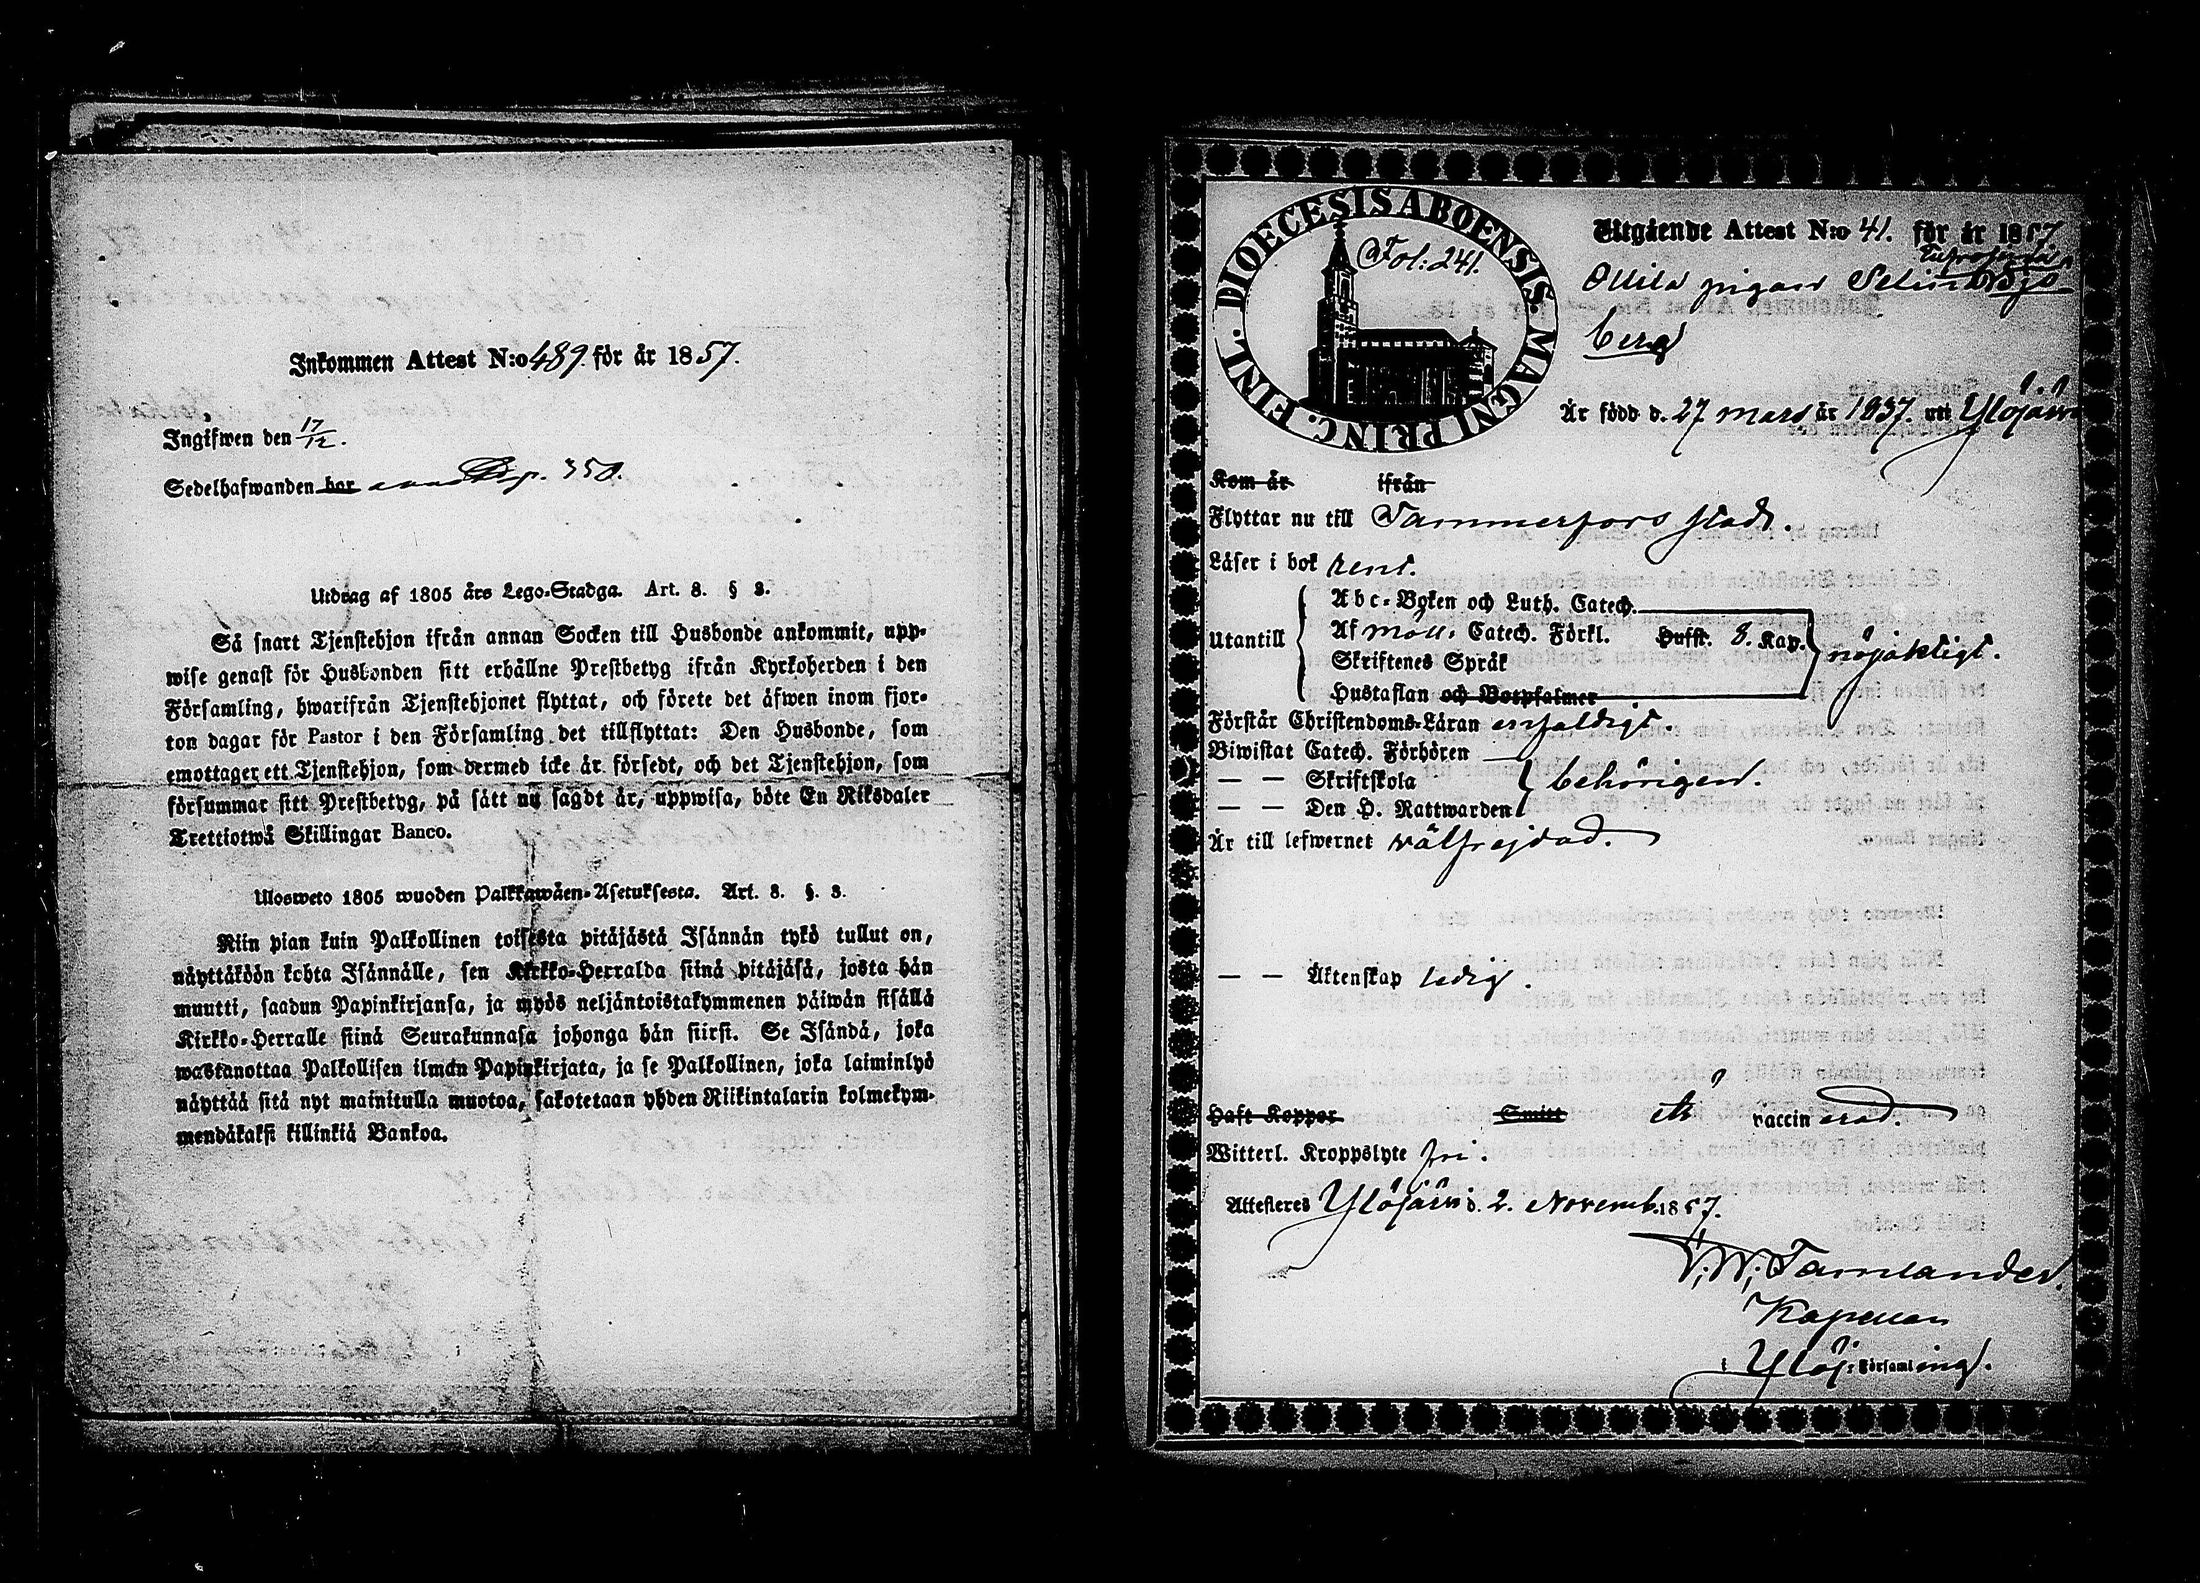 Inkommen Attest N:o 489. för år 1857.
Ingifwen den 17/12.
Sedelhafwanden har pag. 350.
Utdrag af 1805 års Lego-Stadga. Art. 8. § 3.
Så snart Tjenstehjon ifrån annan Socken till Husbonde ankommit, upp-
wise genast för Husbonden sitt erhållne Prestbetyg ifrån Kyrkoherden i den
Församling, hwarifrån Tjenstehjonet flyttat, och förete det äfwen inom fjor-
ton dagar för Pastor i den Församling det tillflyttat: Den Husbonde, som
emottager ett Tjenstehjon, som dermed icke är försedt, och det Tjenstehjon, som
försummar sitt Prestbetyg, på sätt nu sagdt är, uppwisa, böte En Riksdaler
Trettiotwå Skillingar Banco.
Ulosweto 1805 wuoden Palkkawäen-Asetuksesta. Art. 8. §. 3.
Niin pian kuin Palkollinen toisesta pitäjästä Isännän tykö tullut on,
näyttäköön kohta Isännälle, sen Kirkko-Herralda siinä pitäjäsä, josta hän
muutti, saadun Papinkirjansa, ja myös neljäntoistakymmenen päiwän sisällä
Kirkko-Herralle siinä Seurakunnasa johonga hän siirsi. Se Isändä, joka
wastanottaa Palkollisen ilman Papinkirjata, ja se Palkollinen, joka laiminlyö
näyttää sitä nyt mainitulla muotoa, sakotetaan yhden Riikintalarin kolmekym-
mendäkaksi killinkiä Bankoa.
DIOECESIS ABOENSIS. MAGNI PRINC. FINL.
Fol: 241.
Utgående Attest N:o 41. för år 1857
Euphrosina
pigan Selina Sjö
berg
Är född d. 27 mars år 1837. uti Ylöjärvi
Kom år ifrån
Flyttar nu till Tammerfors stad.
Läser i bok rent.
Utantill
Abc-Boken och Luth. Catech.
Af Möll. Catech. Förkl. Hufst. 8. Kap.
Skriftenes Språk
Hustaflan och Botpsalmer
nöjaktigt.
Förstår Christendoms-Läran enfaldigt.
Biwistat Catech. Förhören
— — Skriftskola
— — Den H. Nattwarden
behörigen.
Är till lefwernet välfrejdad.
— — Äktenskap ledig.
Haft Koppor Smitt vaccinerad.
Witterl. Kroppslyte fri.
Attesteres Ylöjärvi d. 2. Novemb. 1857.
Tamlander.
Kapellan
i Ylöj: Församling.